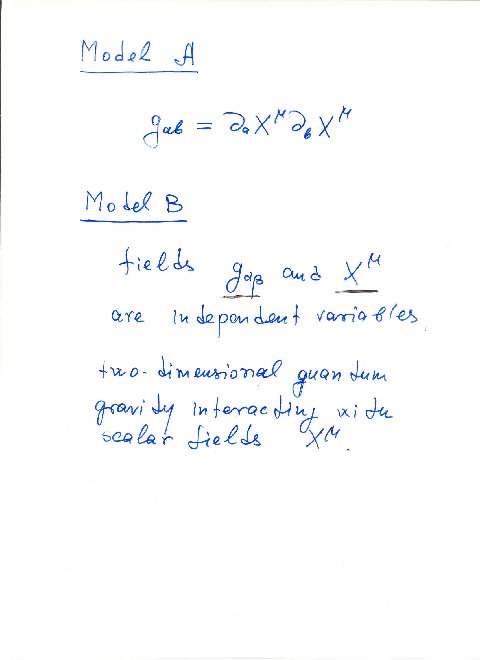 Model A
g_ab = ∂_a X^μ ∂_b X^μ
Model B
fields g_αβ and X^μ
are independent variables
two-dimensional quantum
gravity interacting with
scalar fields X^μ.